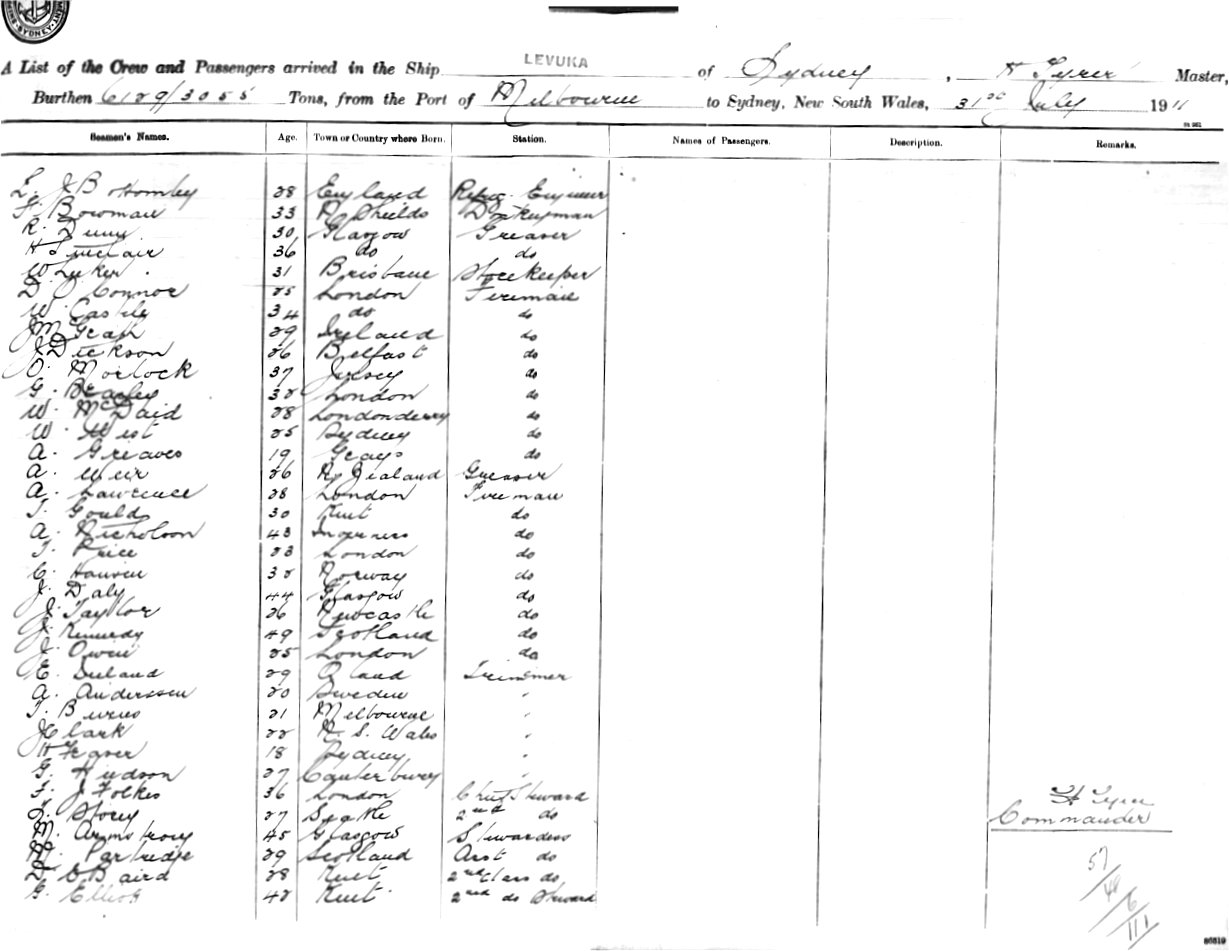 SYDNEY
A List of the Crew and Passengers arrived in the Ship LEVUKA of Sydney, H Tyrer Master,
Burthen 6129/3055 Tons, from the Port of Melbourne to Sydney, New South Wales, 31st July 1911
Seamen's Names. Age. Town or Country where Born. Station. Names of Passengers. Description. Remarks.
L. J B Hornby 28 England Refrig. Engineer
F. Bowman 33 N. Shields Donkeyman
R. Dunn 30 Glasgow Greaser
H Sinclair 36 do do
W 31 Brisbane Storekeeper
D. O Connor 25 London Fireman
W. Castle 34 do do
J McGrath 29 Ireland do
J Dickson 26 Belfast do
O. Morlock 37 Jersey do
G. Bradley 32 London do
W. McDaid 28 Londonderry do
W. West 25 Sydney do
A. Greaves 19 Grays do
A. Weir 26 N. Zealand Greaser
A. Lawrence 28 London Fireman
T. Gould 30 Kent do
A. Nicholson 43 Inverness do
T. Price 23 London do
C. Hansen 32 Norway do
J. Daly 44 Glasgow do
J. Taylor 26 Newcastle do
J. Kennedy 49 Scotland do
J. Owen 25 London do
E. 29 Trimmer
A. Anderssen 20 Sweden "
T. Burns 21 Melbourne "
J Clark 22 N. S. Wales "
H Fraser 18 Sydney "
G. Hudson 27 Canterbury "
F. J Folkes 36 London Chief Steward
Storey 27 Seattle 2nd do
M. Armstrong 45 Glasgow Stewardess
M. Partridge 29 Scotland Asst do
D Baird 28 Kent 2nd Class do
G. Elliott 42 Kent 2nd do Steward
H Tyrer
Commander
57
48
6
111